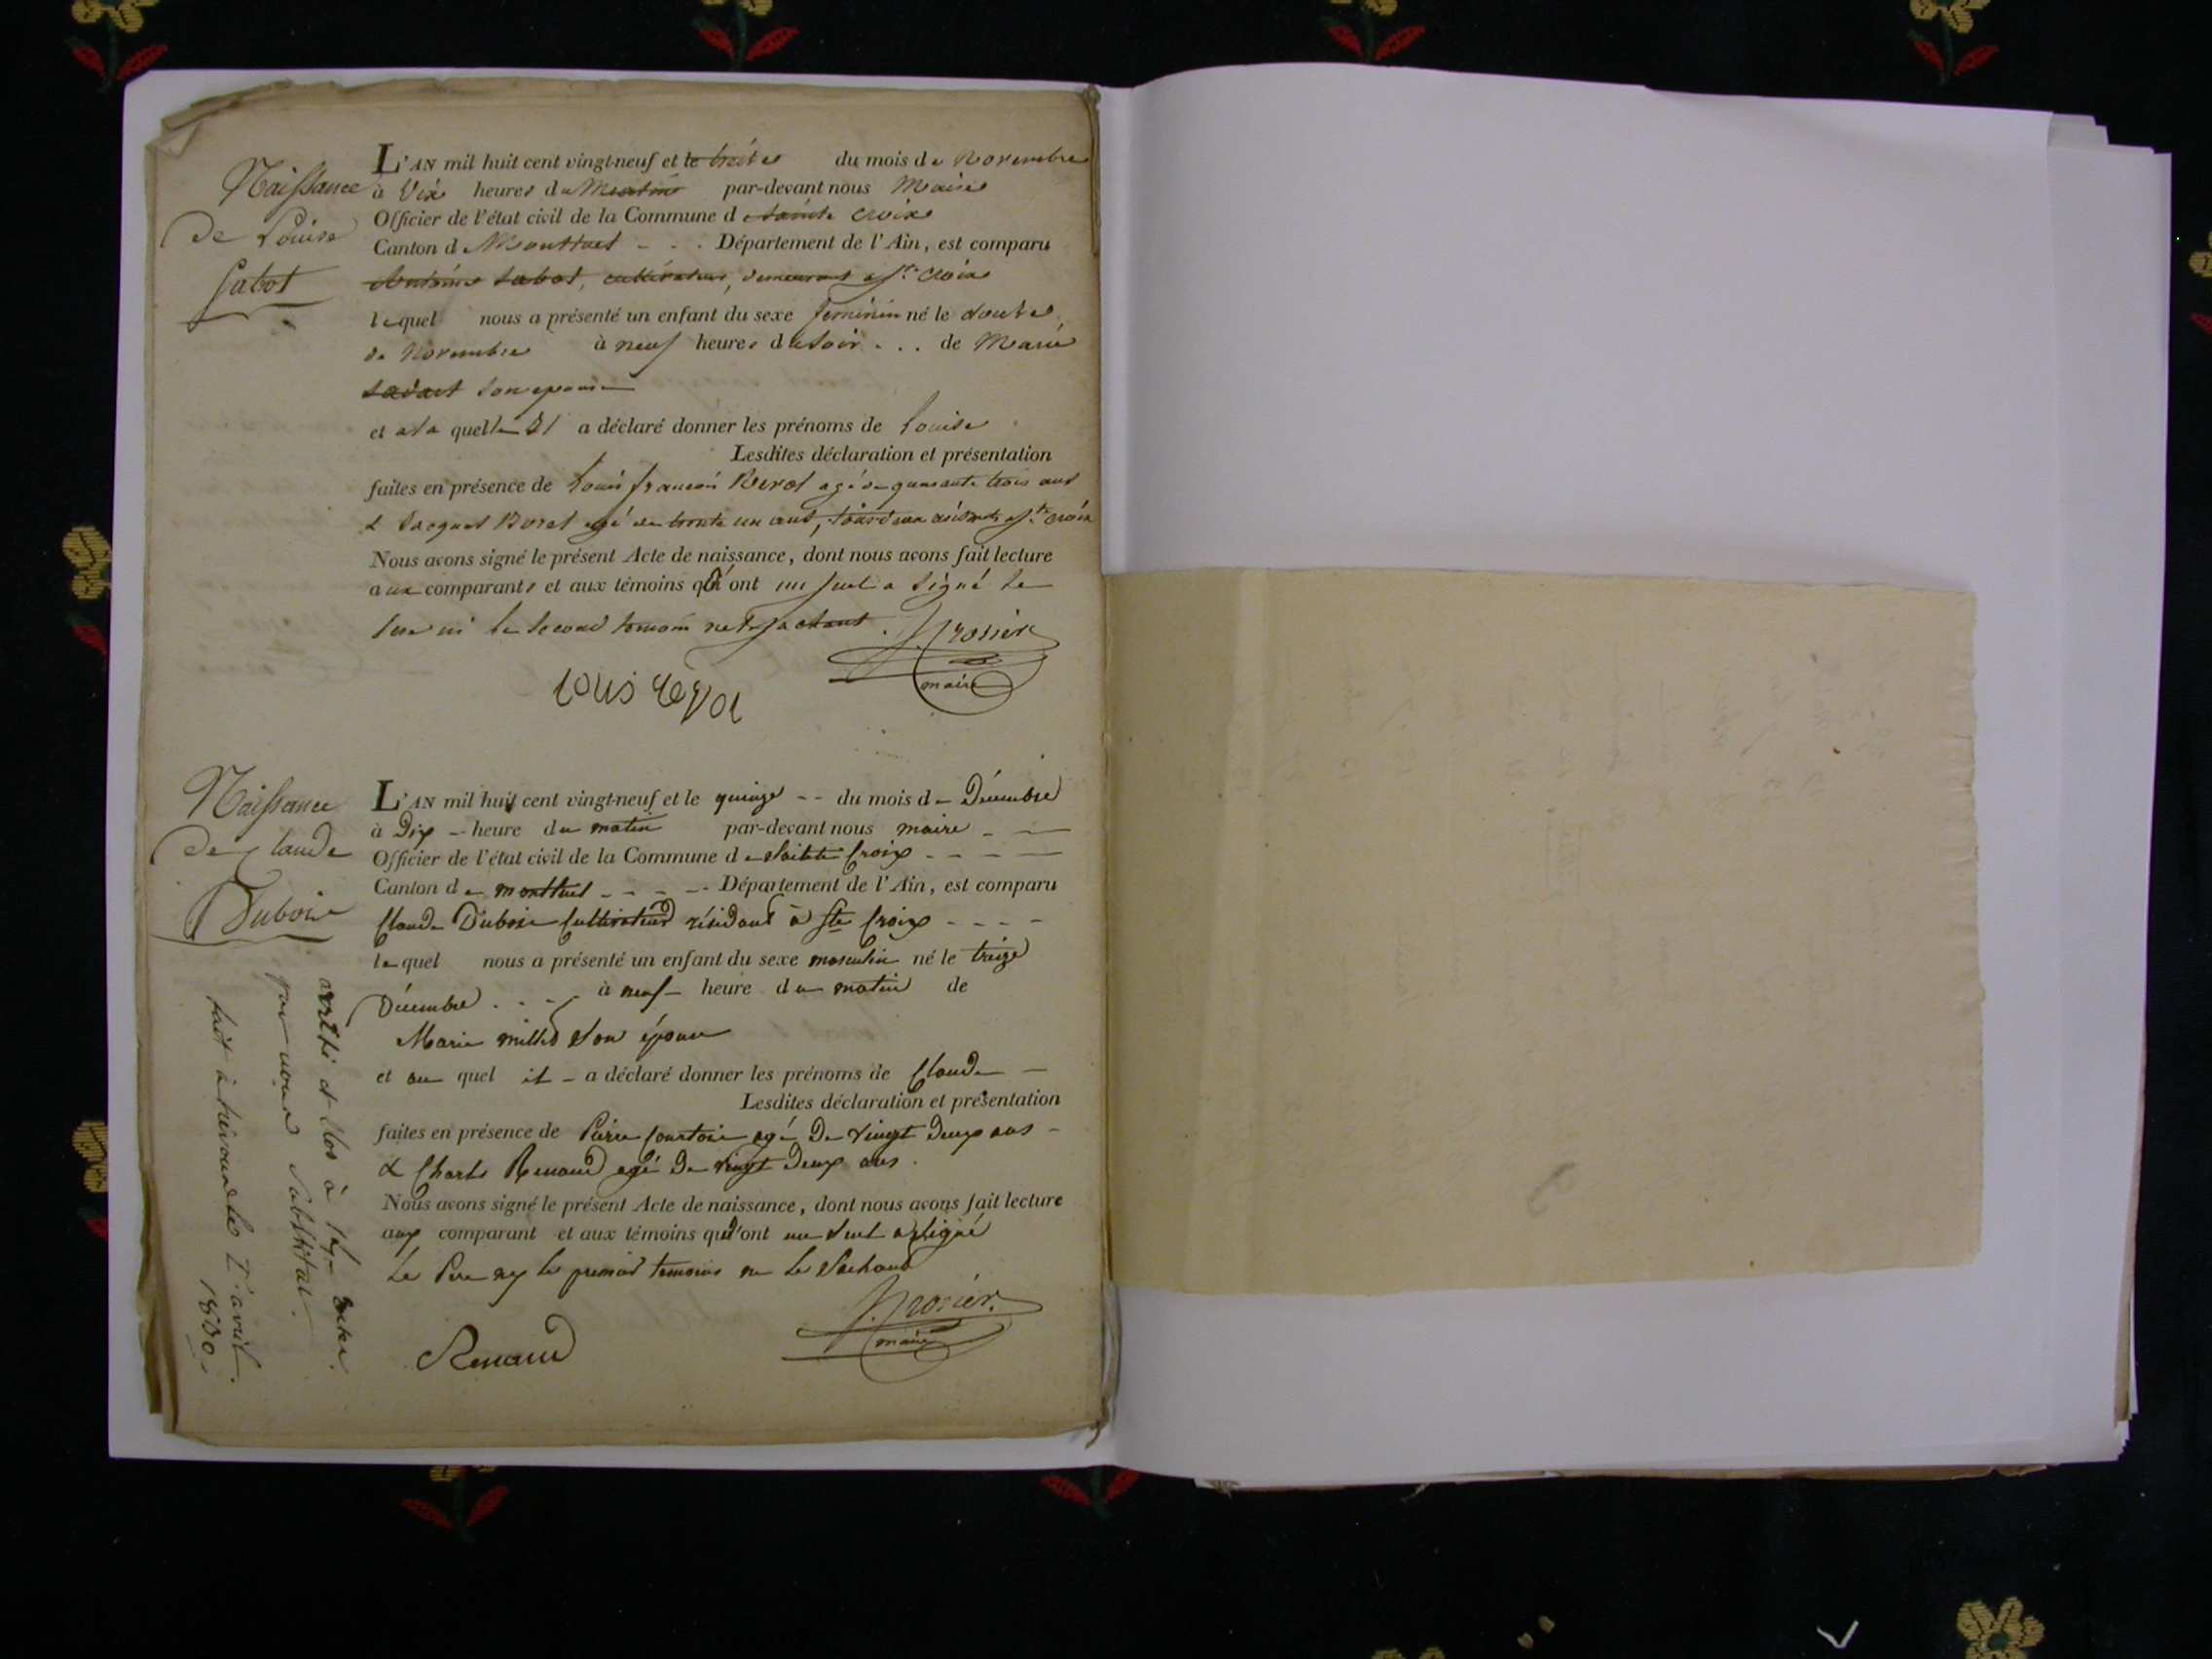 Naissance
de Louise
Sabot
L'AN mil huit cent vingt-neuf et le treize du mois de Novembre
à Dix heures du Matin par-devant nous Maire
Officier de l'état civil de la Commune de Sainte Croix
Canton de Montluel - - . Département de l'Ain, est comparu
Antoine Sabot, cultivateur, demeurant a Ste Croix
lequel nous a présenté un enfant du sexe feminin né le douze
de Novembre à neuf heures du soir . . . de Marie
son epouse
et a la quelle Il a déclaré donner les prénoms de Louise
Lesdites déclaration et présentation
faites en présence de Louis françois agé de quarante trois ans
& Jacques agé de trente un ans, tous deux à Ste Croix
Nous avons signé le présent Acte de naissance, dont nous avons fait lecture
aux comparants et aux témoins qui ont un seul a signé le
pere ni le second temoin ne le sachant . Prosier
maire
Louis
Naissance
de Claude
Dubois
L'AN mil huit cent vingt-neuf et le quinze -- du mois de Décembre
à Dix - heure du matin par-devant nous maire - —
Officier de l'état civil de la Commune de Sainte Croix - - - —
Canton de montluel - - - -- Département de l'Ain, est comparu
Claude Dubois Cultivateur résidant à Ste Croix - - - -
lequel nous a présenté un enfant du sexe masculin né le treize
Décembre . . - à neuf - heure du matin de
Marie millet son épouse
et au quel il - a déclaré donner les prénoms de Claude —
Lesdites déclaration et présentation
faites en présence de Pierre Courtois agé De vingt Deux ans -
& Charles Renaud agé De vingt Deux ans .
Nous avons signé le présent Acte de naissance, dont nous avons fait lecture
aux comparant et aux témoins qui ont un seul a signé
Le Pere ny le premier temoins ne le Sachant
Prosier.
maire
Renaud
arrêté et clos à
par nous Substitut.
fait à trévoux le 2 avril.
1830.